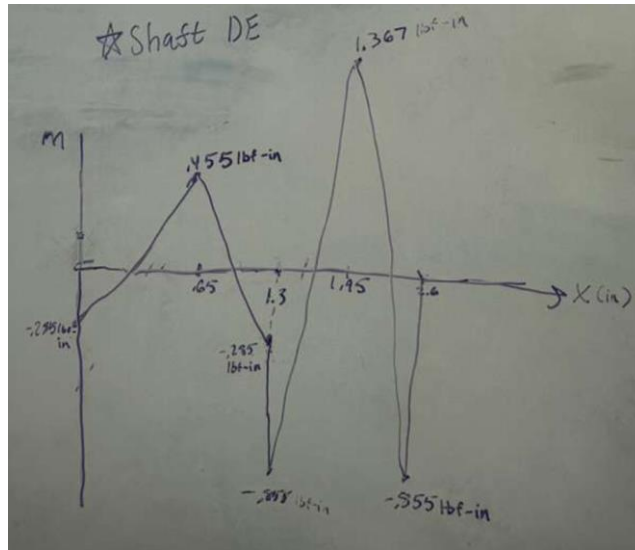 ☆ Shaft DE
1.367 lbf-in
M
.455 lbf-in
.65
1.3
1.95
2.6
X (in)
in
-.285
lbf-in
lbf-in
-.555 lbf-in